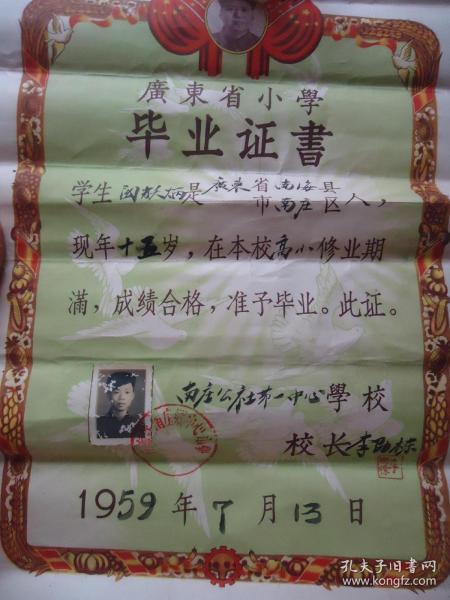 廣東省小學
毕业证書
学生是廣东省南海县
市南庄区人，
现年十五岁，在本校高小修业期
满，成绩合格，准予毕业。此证。
南庄公社第一中心學校
校长李
1959年7月13日
孔夫子旧书网
www.kongfz.com